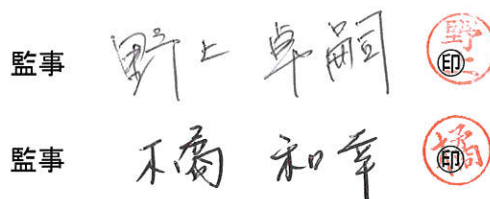 監事 野上 卓嗣 ㊞
監事 橘 和幸 ㊞